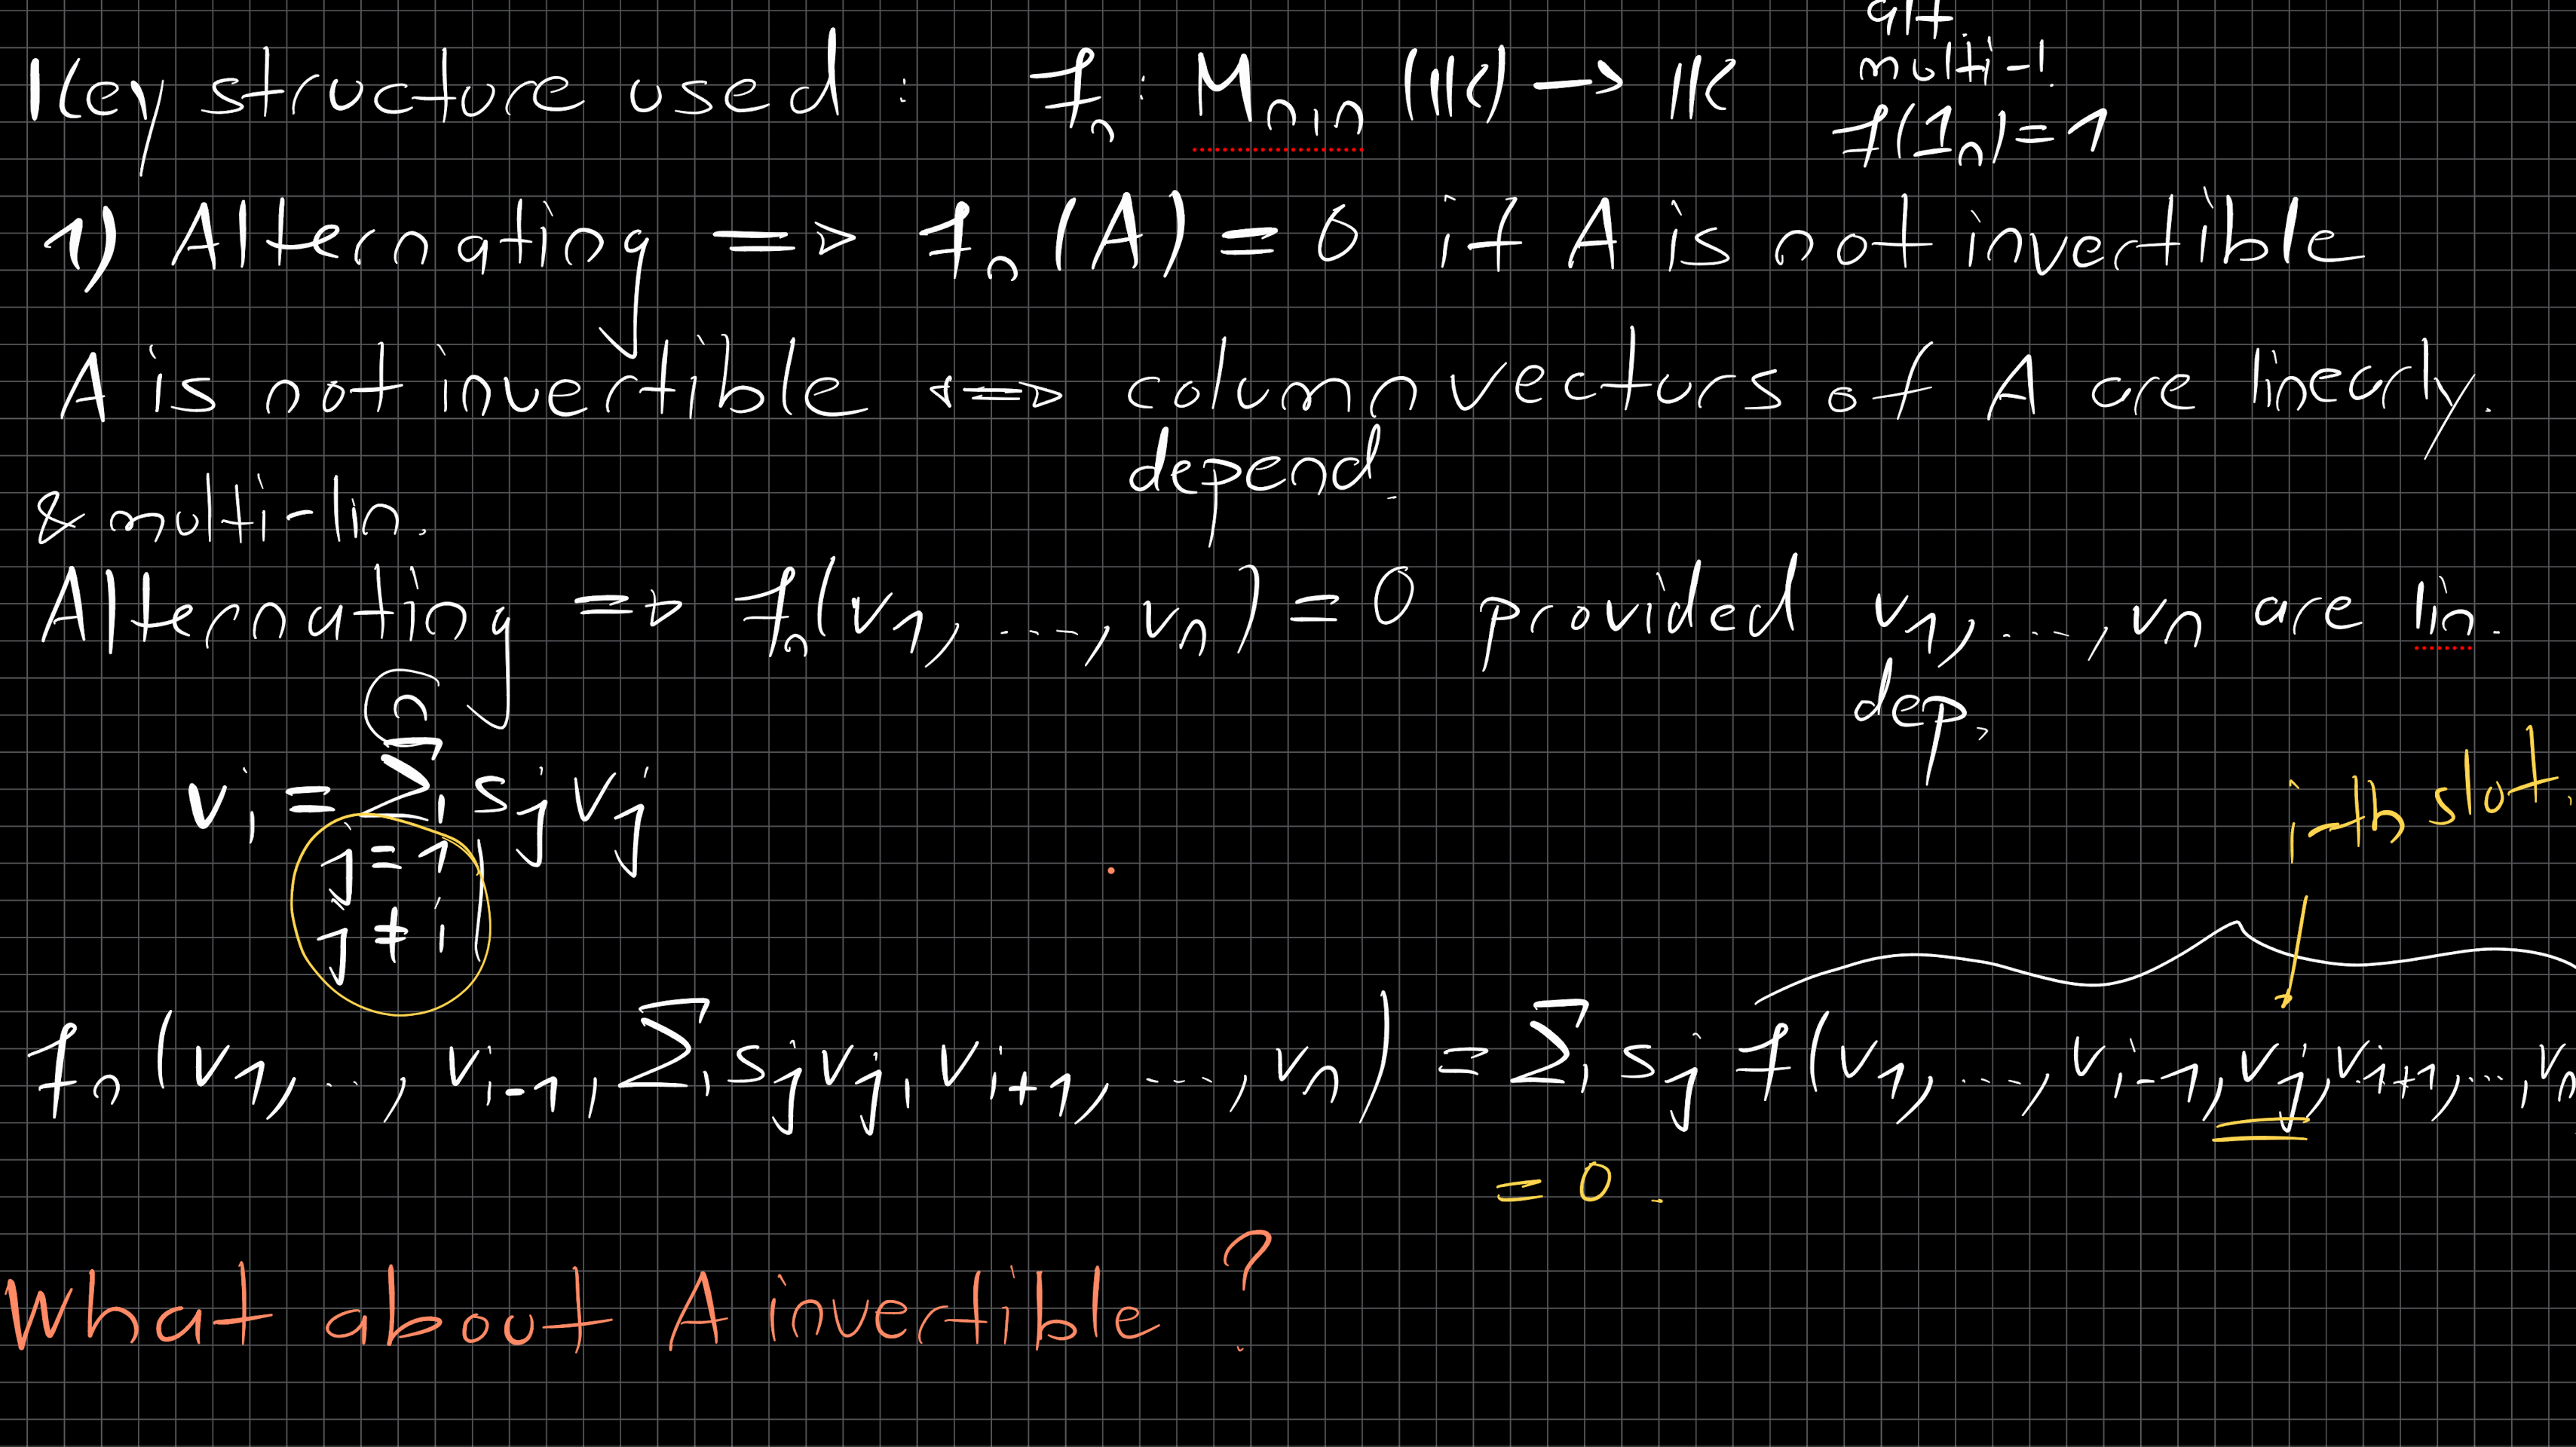 alt.
multi-l.
Key structure used : fₙ : Mₙ,ₙ (𝕂) → 𝕂
f(1ₙ) = 1
1) Alternating => fₙ (A) = 0 if A is not invertible
A is not invertible <=> column vectors of A are linearly.
depend.
& multi-lin.
Alternating => fₙ(v₁, ..., vₙ) = 0 provided v₁, ..., vₙ are lin.
dep.
n
vᵢ = Σ sⱼ vⱼ
j = 1
j ≠ i
i-th slot.
fₙ (v₁, ..., vᵢ₋₁, Σ sⱼ vⱼ, vᵢ₊₁, ..., vₙ) = Σ sⱼ f(v₁, ..., vᵢ₋₁, vⱼ, vᵢ₊₁, ..., vₙ
= 0.
What about A invertible ?